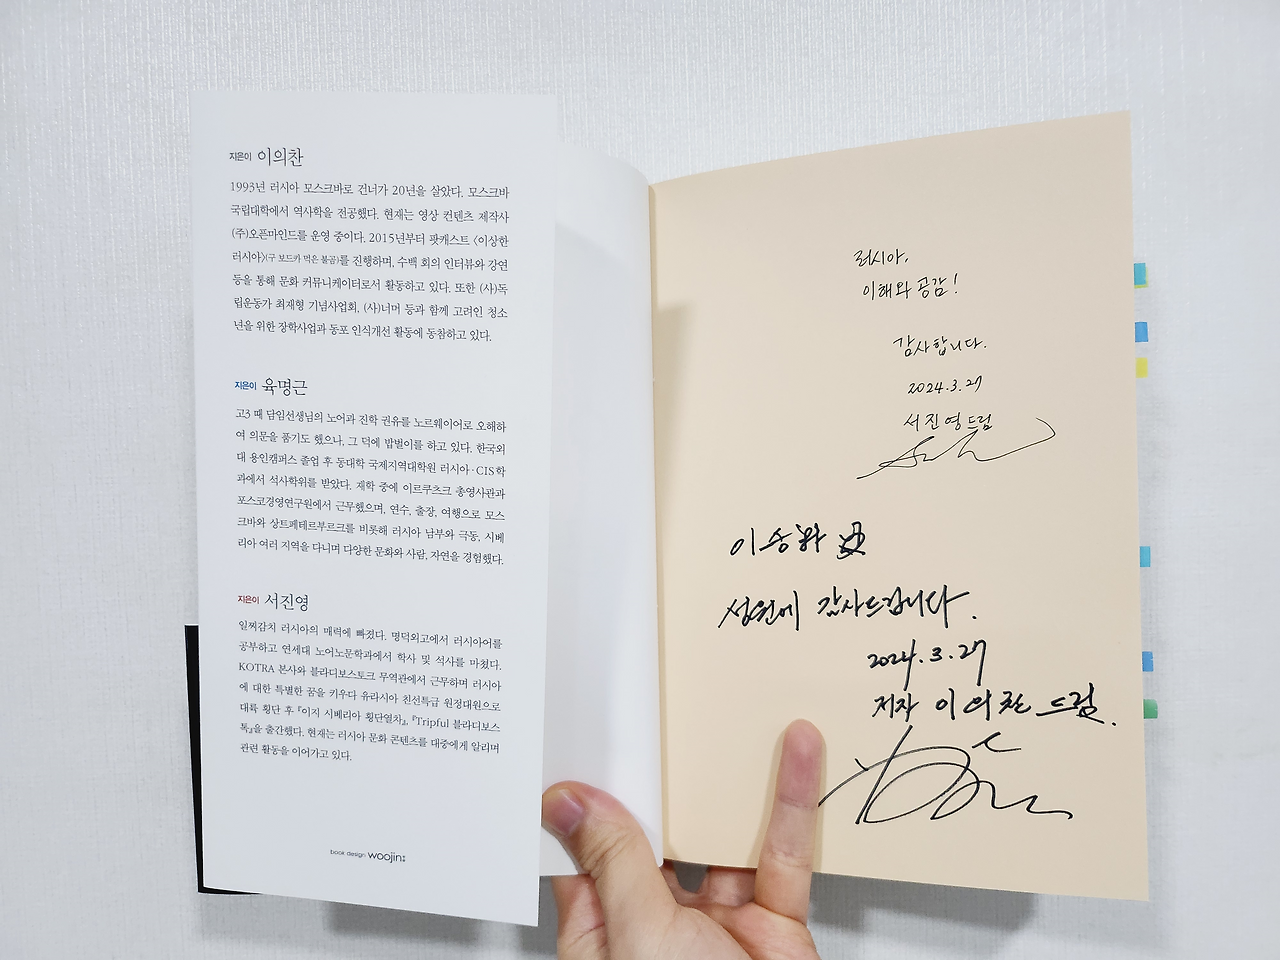 지은이 이의찬
1993년 러시아 모스크바로 건너가 20년을 살았다. 모스크바
국립대학에서 역사학을 전공했다. 현재는 영상 컨텐츠 제작사
(주)오픈마인드를 운영 중이다. 2015년부터 팟캐스트 〈이상한
러시아〉(구 보드카 먹은 불곰)를 진행하며, 수백 회의 인터뷰와 강연
등을 통해 문화 커뮤니케이터로서 활동하고 있다. 또한 (사)독
립운동가 최재형 기념사업회, (사)너머 등과 함께 고려인 청소
년을 위한 장학사업과 동포 인식개선 활동에 동참하고 있다.
지은이 육명근
고3 때 담임선생님의 노어과 진학 권유를 노르웨이어로 오해하
여 의문을 품기도 했으나, 그 덕에 밥벌이를 하고 있다. 한국외
대 용인캠퍼스 졸업 후 동대학 국제지역대학원 러시아·CIS학
과에서 석사학위를 받았다. 재학 중에 이르쿠츠크 총영사관과
포스코경영연구원에서 근무했으며, 연수, 출장, 여행으로 모스
크바와 상트페테르부르크를 비롯해 러시아 남부와 극동, 시베
리아 여러 지역을 다니며 다양한 문화와 사람, 자연을 경험했다.
지은이 서진영
일찌감치 러시아의 매력에 빠졌다. 명덕외고에서 러시아어를
공부하고 연세대 노어노문학과에서 학사 및 석사를 마쳤다.
KOTRA 본사와 블라디보스토크 무역관에서 근무하며 러시아
에 대한 특별한 꿈을 키우다 유라시아 친선특급 원정대원으로
대륙 횡단 후 『이지 시베리아 횡단열차』, 『Tripful 블라디보스
톡』을 출간했다. 현재는 러시아 문화 콘텐츠를 대중에게 알리며
관련 활동을 이어가고 있다.
book design woojin
러시아,
이해와 공감!
감사합니다.
2024.3.27
서진영 드림
이승화
성원에 감사드립니다.
2024.3.27
저자 이의찬 드림.